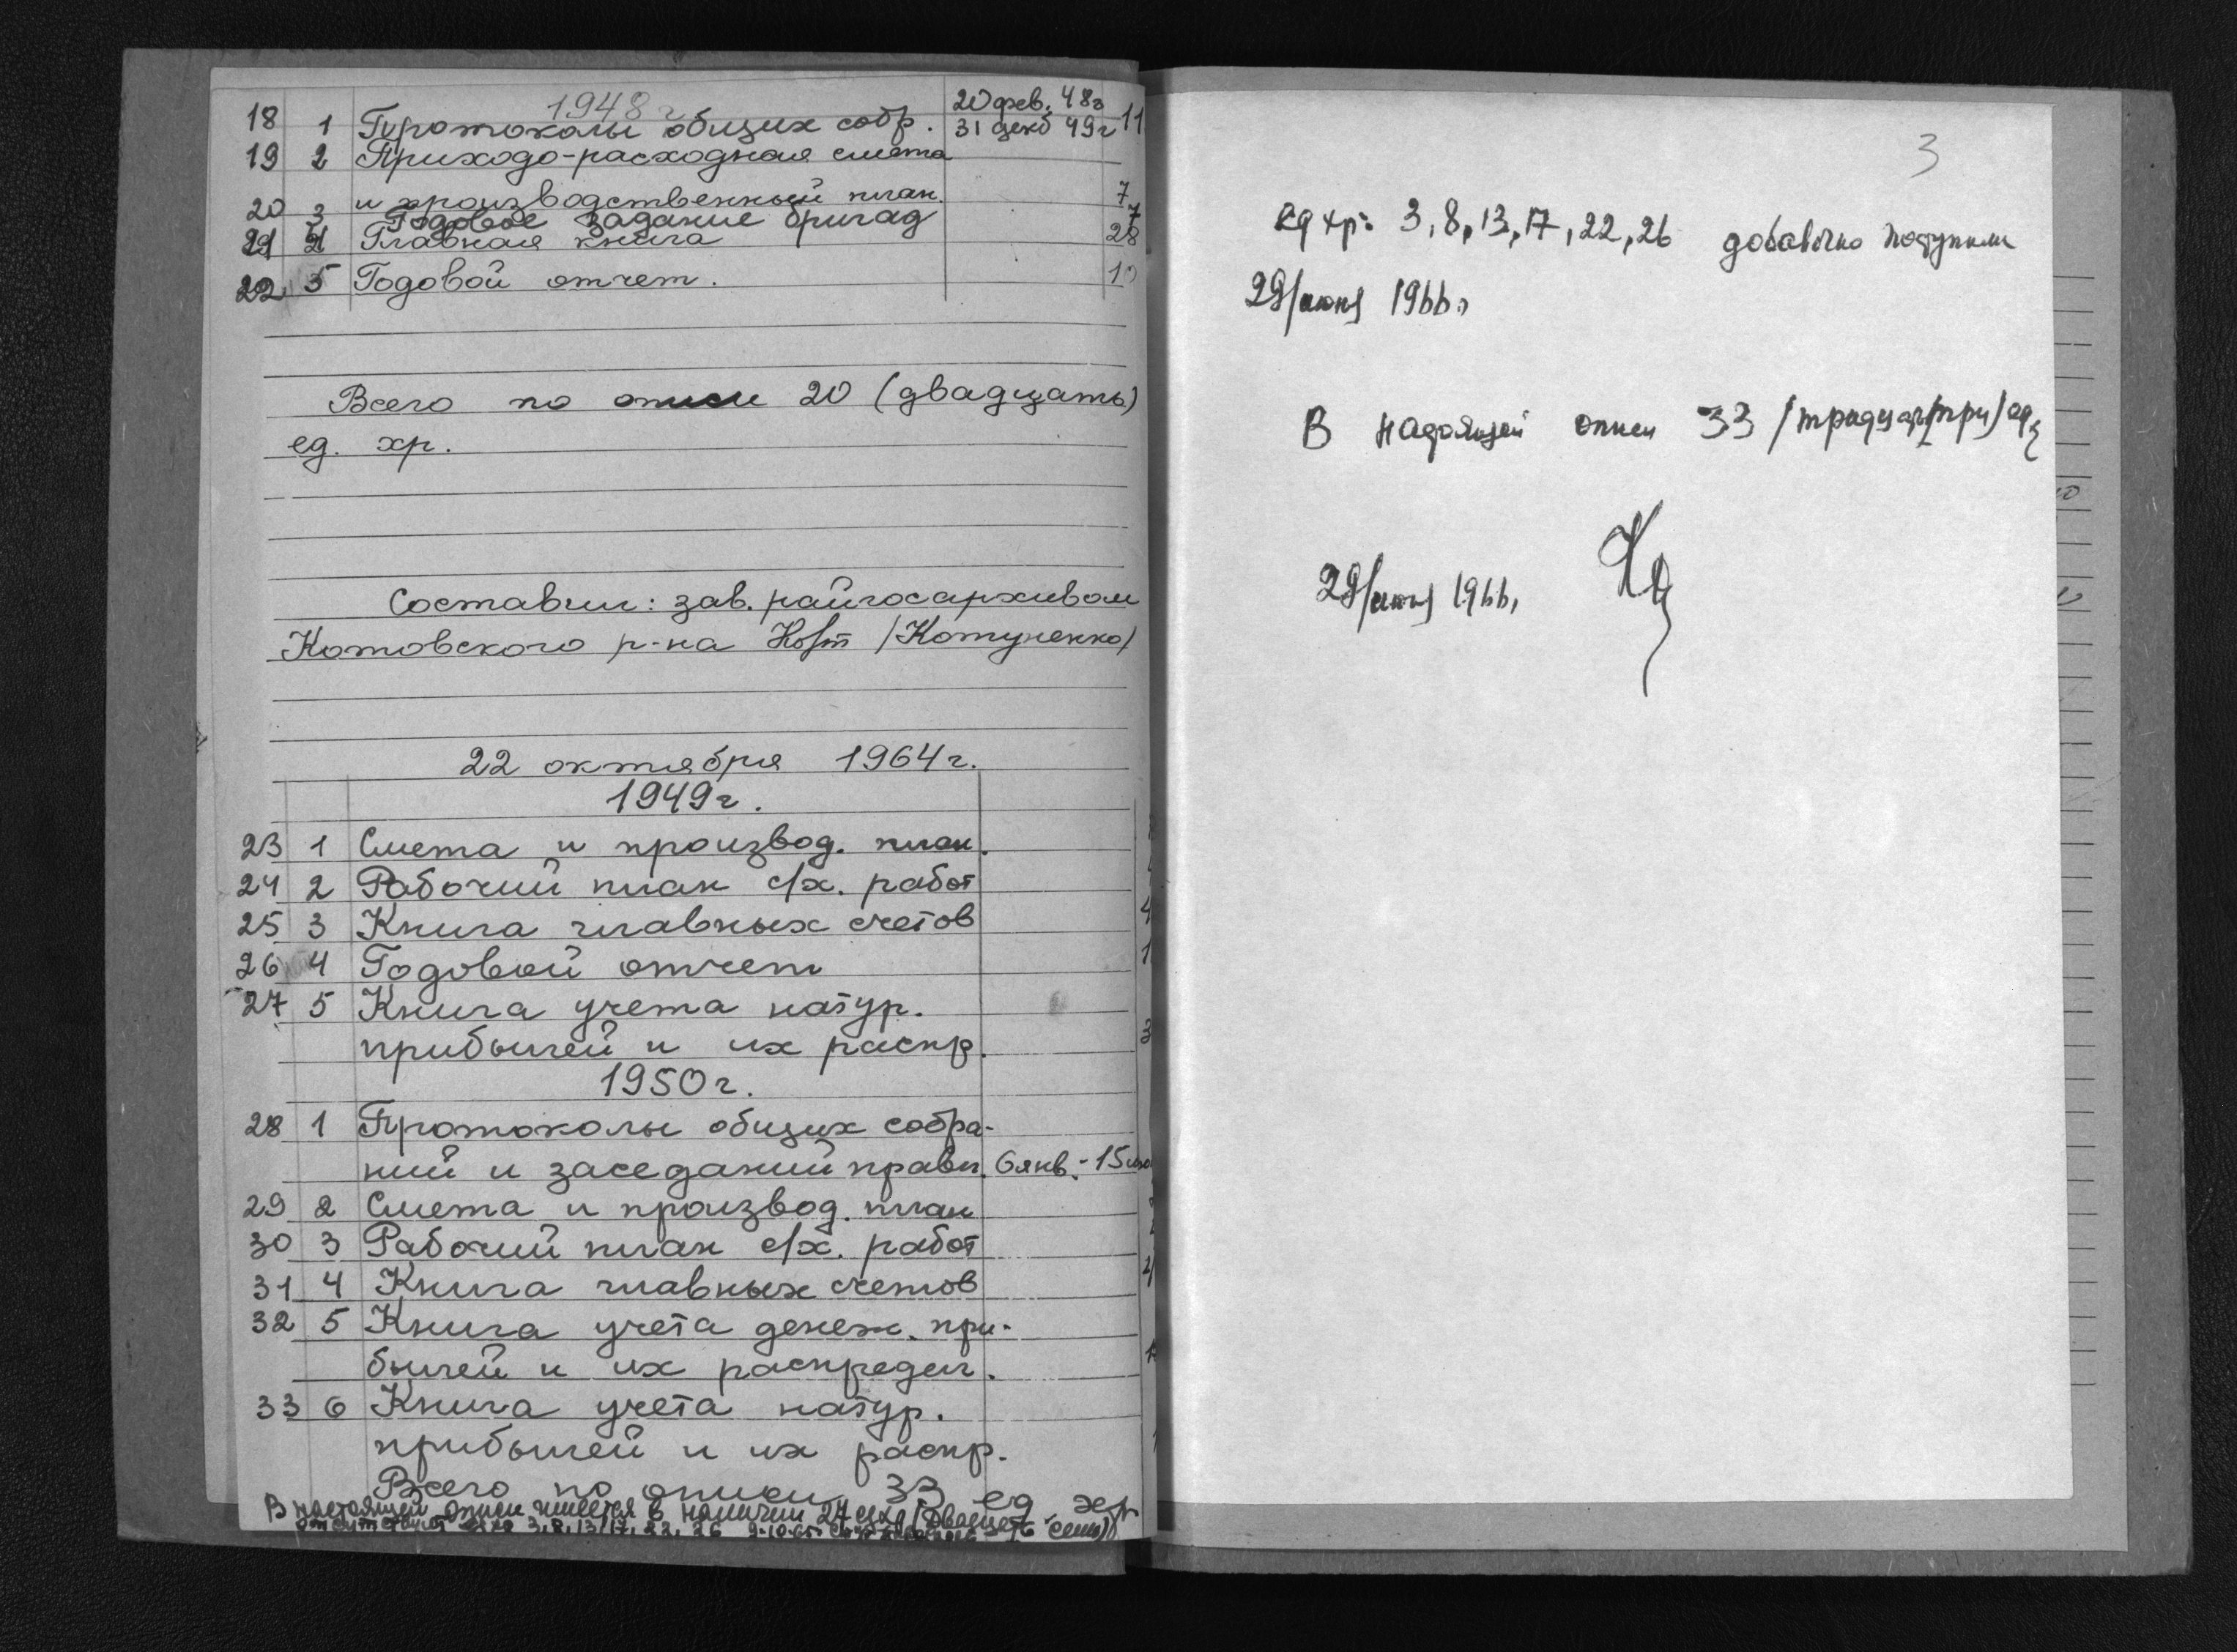 1948 г
18 1 Протоколы общих собр. 20 фев. 48г 31 декб 49г 11
19 2 Приходо-расходная смета
и производственный план. 7
20 3 Годовое задание бригад 7
21 4 Главная книга 28
22 5 Годовой отчет. 10
Всего по описи 20 (двадцать)
ед. хр.
Составил: зав. райгосархивом
Котовского р-на /Котуненко/
22 октября 1964г.
1949г.
23 1 Смета и производ. план.
24 2 Рабочий план с/х. работ
25 3 Книга главных счетов
26 4 Годовой отчет
27 5 Книга учета натур.
прибылей и их распр.
1950г.
28 1 Протоколы общих собра-
ний и заседаний правл. 6 янв. - 15
29 2 Смета и производ. план
30 3 Рабочий план с/х. работ
31 4 Книга главных счетов
32 5 Книга учета денеж. при-
былей и их распредел.
33 6 Книга учета натур.
прибылей и их распр.
Всего по описи 33 ед. хр
В настоящей описи имеется в наличии 27 ед хр (двадцать семь)
отсутствуют 3, 8, 13, 17, 22, 26
3
ед хр: 3, 8, 13, 17, 22, 26 добавочно поступили
29/июня 1966г
В настоящей описи 33 /тридцать три/ ед
29/июня 1966,